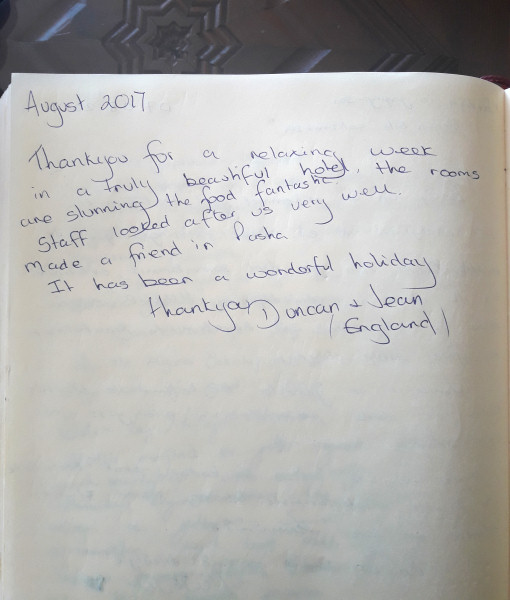 August 2017
Thankyou for a relaxing week
in a truly beautiful hotel, the rooms
are stunning the food fantastic.
Staff looked after us very well.
Made a friend in Pasha
It has been a wonderful holiday
thankyou Duncan + Jean
(England)